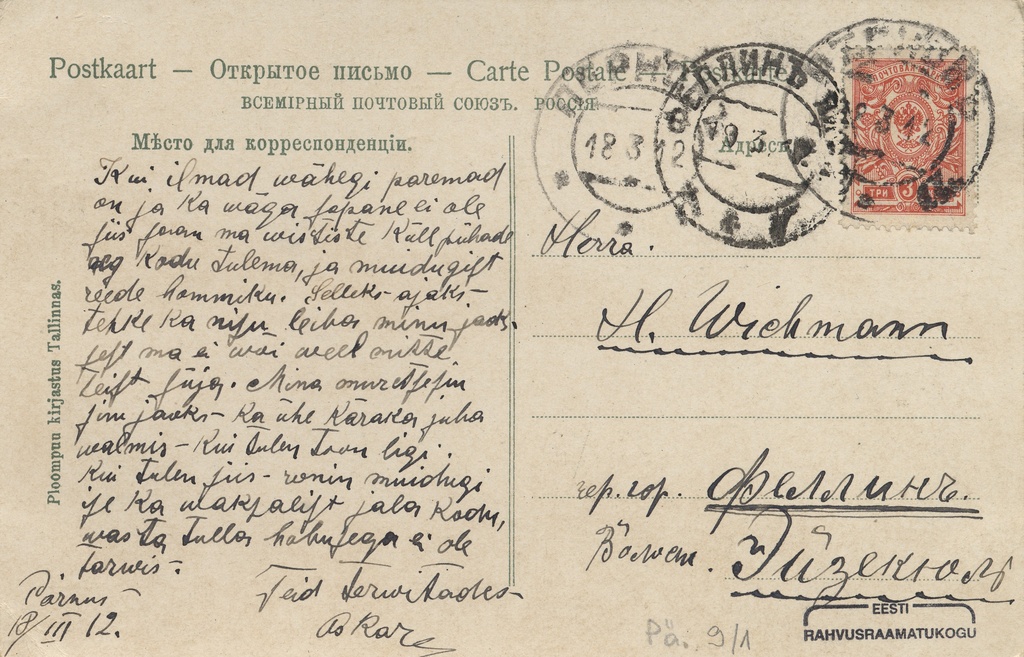 Postkaart — Открытое письмо — Carte Postale
ВСЕМІРНЫЙ ПОЧТОВЫЙ СОЮЗЪ. РОССІЯ
Мѣсто для корреспонденціи.
Адрест
Ploompuu kirjastus Tallinnas.
18 3 12
ФЕЛЛИНЪ
19.3
18 3 12
ТРИ 3
Kui ilmad wähegi paremad
on ja ka wäga sopane ei ole
siis soran ma wististe küll pühade
aeg kodu tulema, ja muidugist
reede hommiku. Selleks-ajaks-
tehke ka nisu leiba minu jaoks
sest ma ei wõi weel mitte
teist süja. Mina muretsesin
sinu jäoks- ka ühe käraka juba
walmis- kui tulen toon ligi.
Kui tulen siis- ronin muidugi
ise ka waksalist jala kodu,
wasta tulla hobusega ei ole
tarwis-
Teid terwitades-
Oskar
Pärnus
18/III 12.
Herra.
H. Wichmann
чер. гор. Феллинъ.
Волость. Эйзекюль
Pä. 9/1
EESTI
RAHVUSRAAMATUKOGU